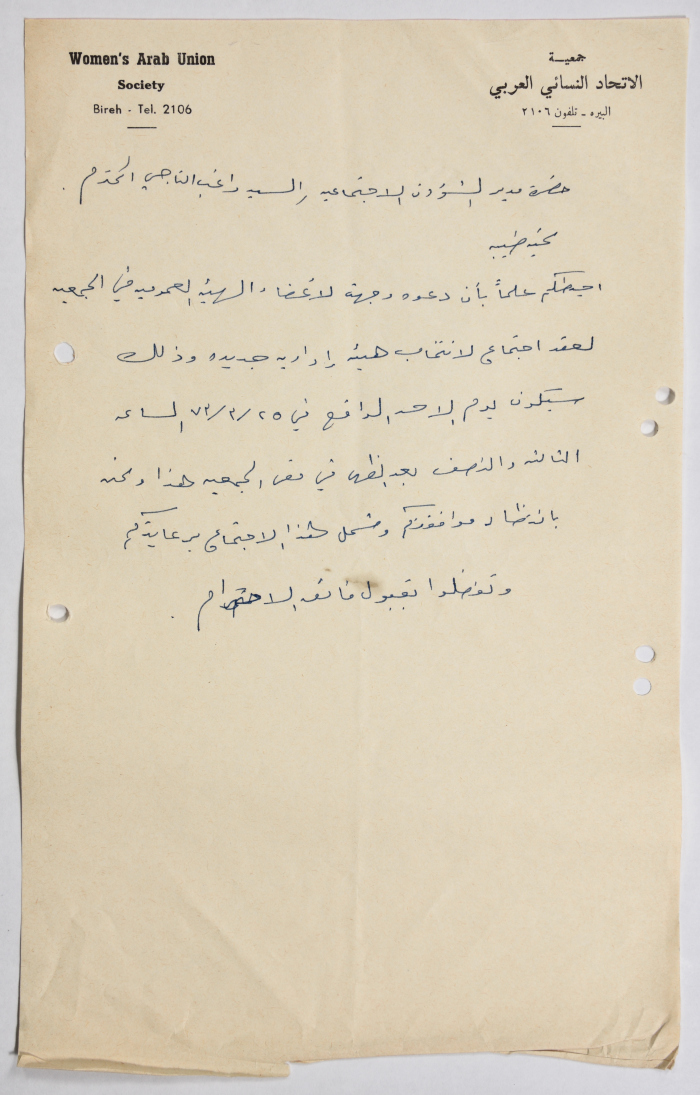 Women's Arab Union
Society
Bireh - Tel. 2106
جمعيـــة
الاتحاد النسائي العربي
البيره - تلفون ٢١٠٦
حضرة مدير الشؤون الاجتماعيه السيد راغب الناجي المحترم .
تحيه طيبه
احيطكم علماً بأن دعوه وجهة لاعضاء الهيئه العموميه في الجمعيه
لعقد اجتماع لانتخاب هيئه إداريه جديده وذلك
سيكون يوم الاحد الواقع في ٢٥/٣/٧٣ الساعه
الثالثه والنصف بعد الظهر في مقر الجمعيه هذا ونحن
بانتظار موافقتكم وشمل هذا الاجتماع برعايتكم
وتفضلوا بقبول فائق الاحترام .